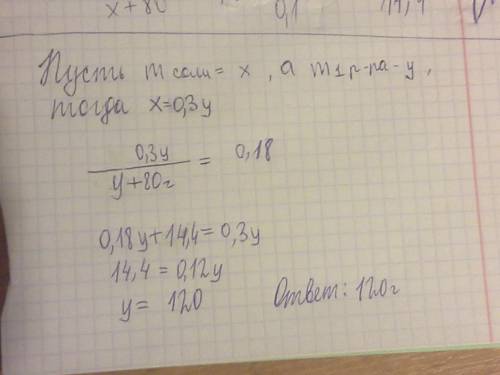 x + 80 0,1
Пусть m соли = x , а m 1 р-ра - y ,
тогда x=0,3y
0,3y
y+80г
= 0,18
0,18y+14,4=0,3y
14,4 = 0,12y
y= 120
Ответ: 120г